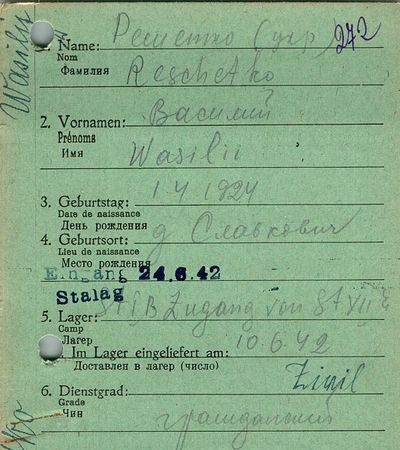 Wasilii
272
1. Name: Решетко
Nom
Фамилия Reschetko
2. Vornamen: Василий
Prénoms
Имя Wasilii
3. Geburtstag: 1.4.1924
Date de naissance
День рождения
4. Geburtsort: д Славкович
Lieu de naissance
Место рождения
Eingang 24.6.42
Stalag
5. Lager: Zugang von St XII
Camp
Лагер
Im Lager eingeliefert am: 10.6.42
Доставлен в лагер (число)
Zivil
6. Dienstgrad:
Grade
Чин гражданский